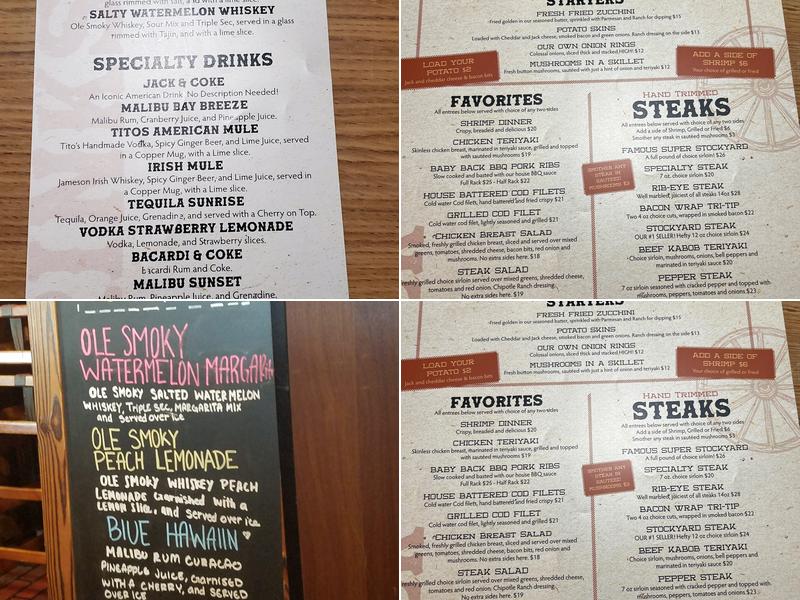 SALTY WATERMELON WHISKEY
Ole Smoky Whiskey, Sour Mix and Triple Sec, served in a glass
rimmed with Tajin, and with a lime slice.
SPECIALTY DRINKS
JACK & COKE
An Iconic American Drink No Description Needed!
MALIBU BAY BREEZE
Malibu Rum, Cranberry Juice, and Pineapple Juice.
TITOS AMERICAN MULE
Tito's Handmade Vodka, Spicy Ginger Beer, and Lime Juice, served
in a Copper Mug, with a Lime slice.
IRISH MULE
Jameson Irish Whiskey, Spicy Ginger Beer, and Lime Juice, served in
a Copper Mug, with a Lime slice.
TEQUILA SUNRISE
Tequila, Orange Juice, Grenadine, and served with a Cherry on Top.
VODKA STRAWBERRY LEMONADE
Vodka, Lemonade, and Strawberry slices.
BACARDI & COKE
Bacardi Rum and Coke.
MALIBU SUNSET
Malibu Rum, Pineapple Juice, and Grenadine.
STARTERS
FRESH FRIED ZUCCHINI
Fried golden in our seasoned batter, sprinkled with Parmesan and Ranch for dipping $15
POTATO SKINS
Loaded with Cheddar and Jack cheese, smoked bacon and green onions. Ranch dressing on the side $13
OUR OWN ONION RINGS
Colossal onions, sliced thick and stacked HIGH! $12
MUSHROOMS IN A SKILLET
Fresh button mushrooms, sautéed with just a hint of onion and teriyaki $12
LOAD YOUR
POTATO $2
Jack and cheddar cheese & bacon bits
ADD A SIDE OF
SHRIMP $6
Your choice of grilled or fried
FAVORITES
All entrees below served with choice of any two sides
SHRIMP DINNER
Crispy, breaded and delicious $20
CHICKEN TERIYAKI
Skinless chicken breast, marinated in teriyaki sauce, grilled and topped
with sautéed mushrooms $19
BABY BACK BBQ PORK RIBS
Slow cooked and basted with our house BBQ sauce
Full Rack $25 - Half Rack $22
HOUSE BATTERED COD FILETS
Cold water Cod filets, hand battered and fried crispy $21
GRILLED COD FILET
Cold water cod filet, lightly seasoned and grilled $21
CHICKEN BREAST SALAD
Smoked, freshly grilled chicken breast, sliced and served over mixed
greens, tomatoes, shredded cheese, bacon bits, red onion and
mushrooms. No extra sides here. $18
STEAK SALAD
freshly grilled choice sirloin served over mixed greens, shredded cheese,
tomatoes and red onion, Chipotle Ranch dressing.
No extra sides here. $19
SMOTHER ANY
STEAK IN
SAUTEED
MUSHROOMS $3
HAND TRIMMED
STEAKS
All entrees below served with choice of any two sides
Add a side of Shrimp, Grilled or Fried $6
Smother any steak in sauteed mushrooms $3
FAMOUS SUPER STOCKYARD
A full pound of choice sirloin! $26
SPECIALTY STEAK
7 oz. choice sirloin $20
RIB-EYE STEAK
Well marbled, juiciest of all steaks 14oz $28
BACON WRAP TRI-TIP
Two 4 oz choice cuts, wrapped in smoked bacon $22
STOCKYARD STEAK
OUR #1 SELLER! Hefty 12 oz choice sirloin $24
BEEF KABOB TERIYAKI
Choice sirloin, mushrooms, onions, bell peppers and
marinated in teriyaki sauce $20
PEPPER STEAK
7 oz sirloin seasoned with cracked pepper and topped with
mushrooms, peppers, tomatoes and onions $23
OLE SMOKY
WATERMELON MARGARA
OLE SMOKY SALTED WATERMELON
WHISKEY, TRIPLE SEC, MARGARITA MIX
and served over ice
OLE SMOKY
PEACH LEMONADE
OLE SMOKY WHISKY PEACH
LEMONADE Garnished with a
LEMON slice, and served over ice
BLUE HAWAIIN
MALIBU RUM CURACAO
PINEAPPLE JUICE, GARNISHED
WITH A CHERRY, AND SERVED
OVER ICE
STARTERS
FRESH FRIED ZUCCHINI
Fried golden in our seasoned batter, sprinkled with Parmesan and Ranch for dipping $15
POTATO SKINS
Loaded with Cheddar and Jack cheese, smoked bacon and green onions. Ranch dressing on the side $13
OUR OWN ONION RINGS
Colossal onions, sliced thick and stacked HIGH! $12
MUSHROOMS IN A SKILLET
Fresh button mushrooms, sautéed with just a hint of onion and teriyaki $12
LOAD YOUR
POTATO $2
Jack and cheddar cheese & bacon bits
ADD A SIDE OF
SHRIMP $6
Your choice of grilled or fried
FAVORITES
All entrees below served with choice of any two sides
SHRIMP DINNER
Crispy, breaded and delicious $20
CHICKEN TERIYAKI
Skinless chicken breast, marinated in teriyaki sauce, grilled and topped
with sautéed mushrooms $19
BABY BACK BBQ PORK RIBS
Slow cooked and basted with our house BBQ sauce
Full Rack $25 - Half Rack $22
HOUSE BATTERED COD FILETS
Cold water Cod filets, hand battered and fried crispy $21
GRILLED COD FILET
Cold water cod filet, lightly seasoned and grilled $21
CHICKEN BREAST SALAD
Smoked, freshly grilled chicken breast, sliced and served over mixed
greens, tomatoes, shredded cheese, bacon bits, red onion and
mushrooms. No extra sides here. $18
STEAK SALAD
freshly grilled choice sirloin served over mixed greens, shredded cheese,
tomatoes and red onion, Chipotle Ranch dressing.
No extra sides here. $19
SMOTHER ANY
STEAK IN
SAUTEED
MUSHROOMS $3
HAND TRIMMED
STEAKS
All entrees below served with choice of any two sides
Add a side of Shrimp, Grilled or Fried $6
Smother any steak in sauteed mushrooms $3
FAMOUS SUPER STOCKYARD
A full pound of choice sirloin! $26
SPECIALTY STEAK
7 oz. choice sirloin $20
RIB-EYE STEAK
Well marbled, juiciest of all steaks 14oz $28
BACON WRAP TRI-TIP
Two 4 oz choice cuts, wrapped in smoked bacon $22
STOCKYARD STEAK
OUR #1 SELLER! Hefty 12 oz choice sirloin $24
BEEF KABOB TERIYAKI
Choice sirloin, mushrooms, onions, bell peppers and
marinated in teriyaki sauce $20
PEPPER STEAK
7 oz sirloin seasoned with cracked pepper and topped with
mushrooms, peppers, tomatoes and onions $23